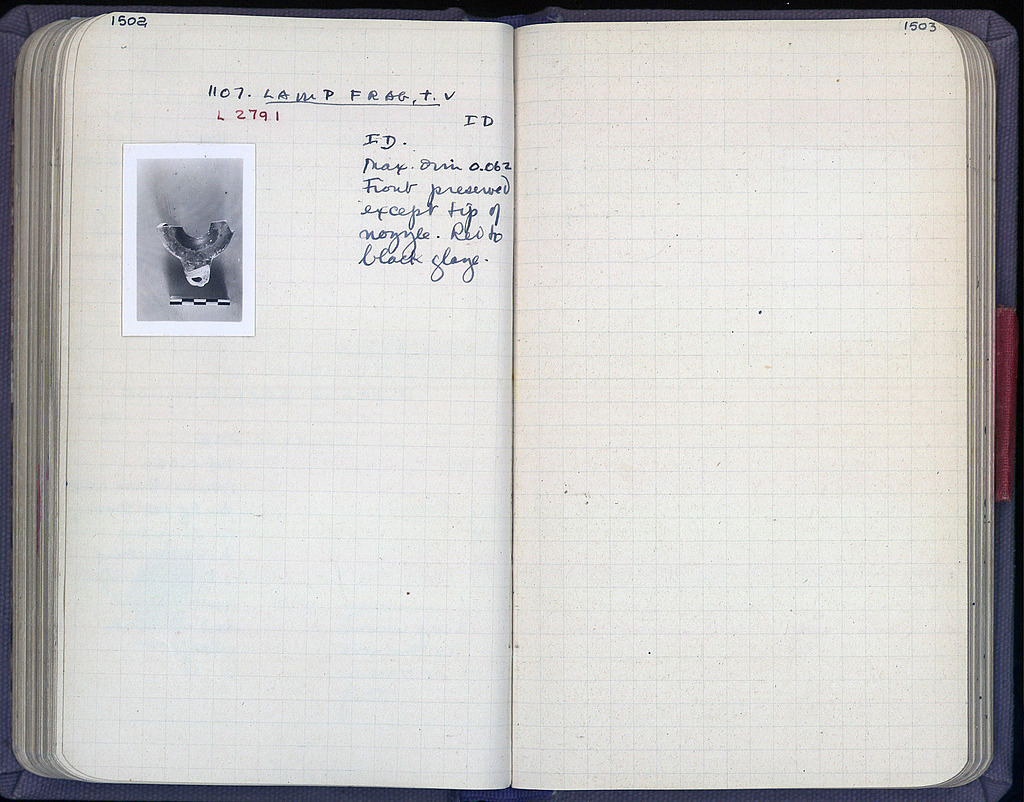 1502
1503
1107. LAMP FRAG, T. V
L 2791
ID
ID.
Max. dim 0.062
Front preserved
except tip of
nozzle. Red to
black glaze.